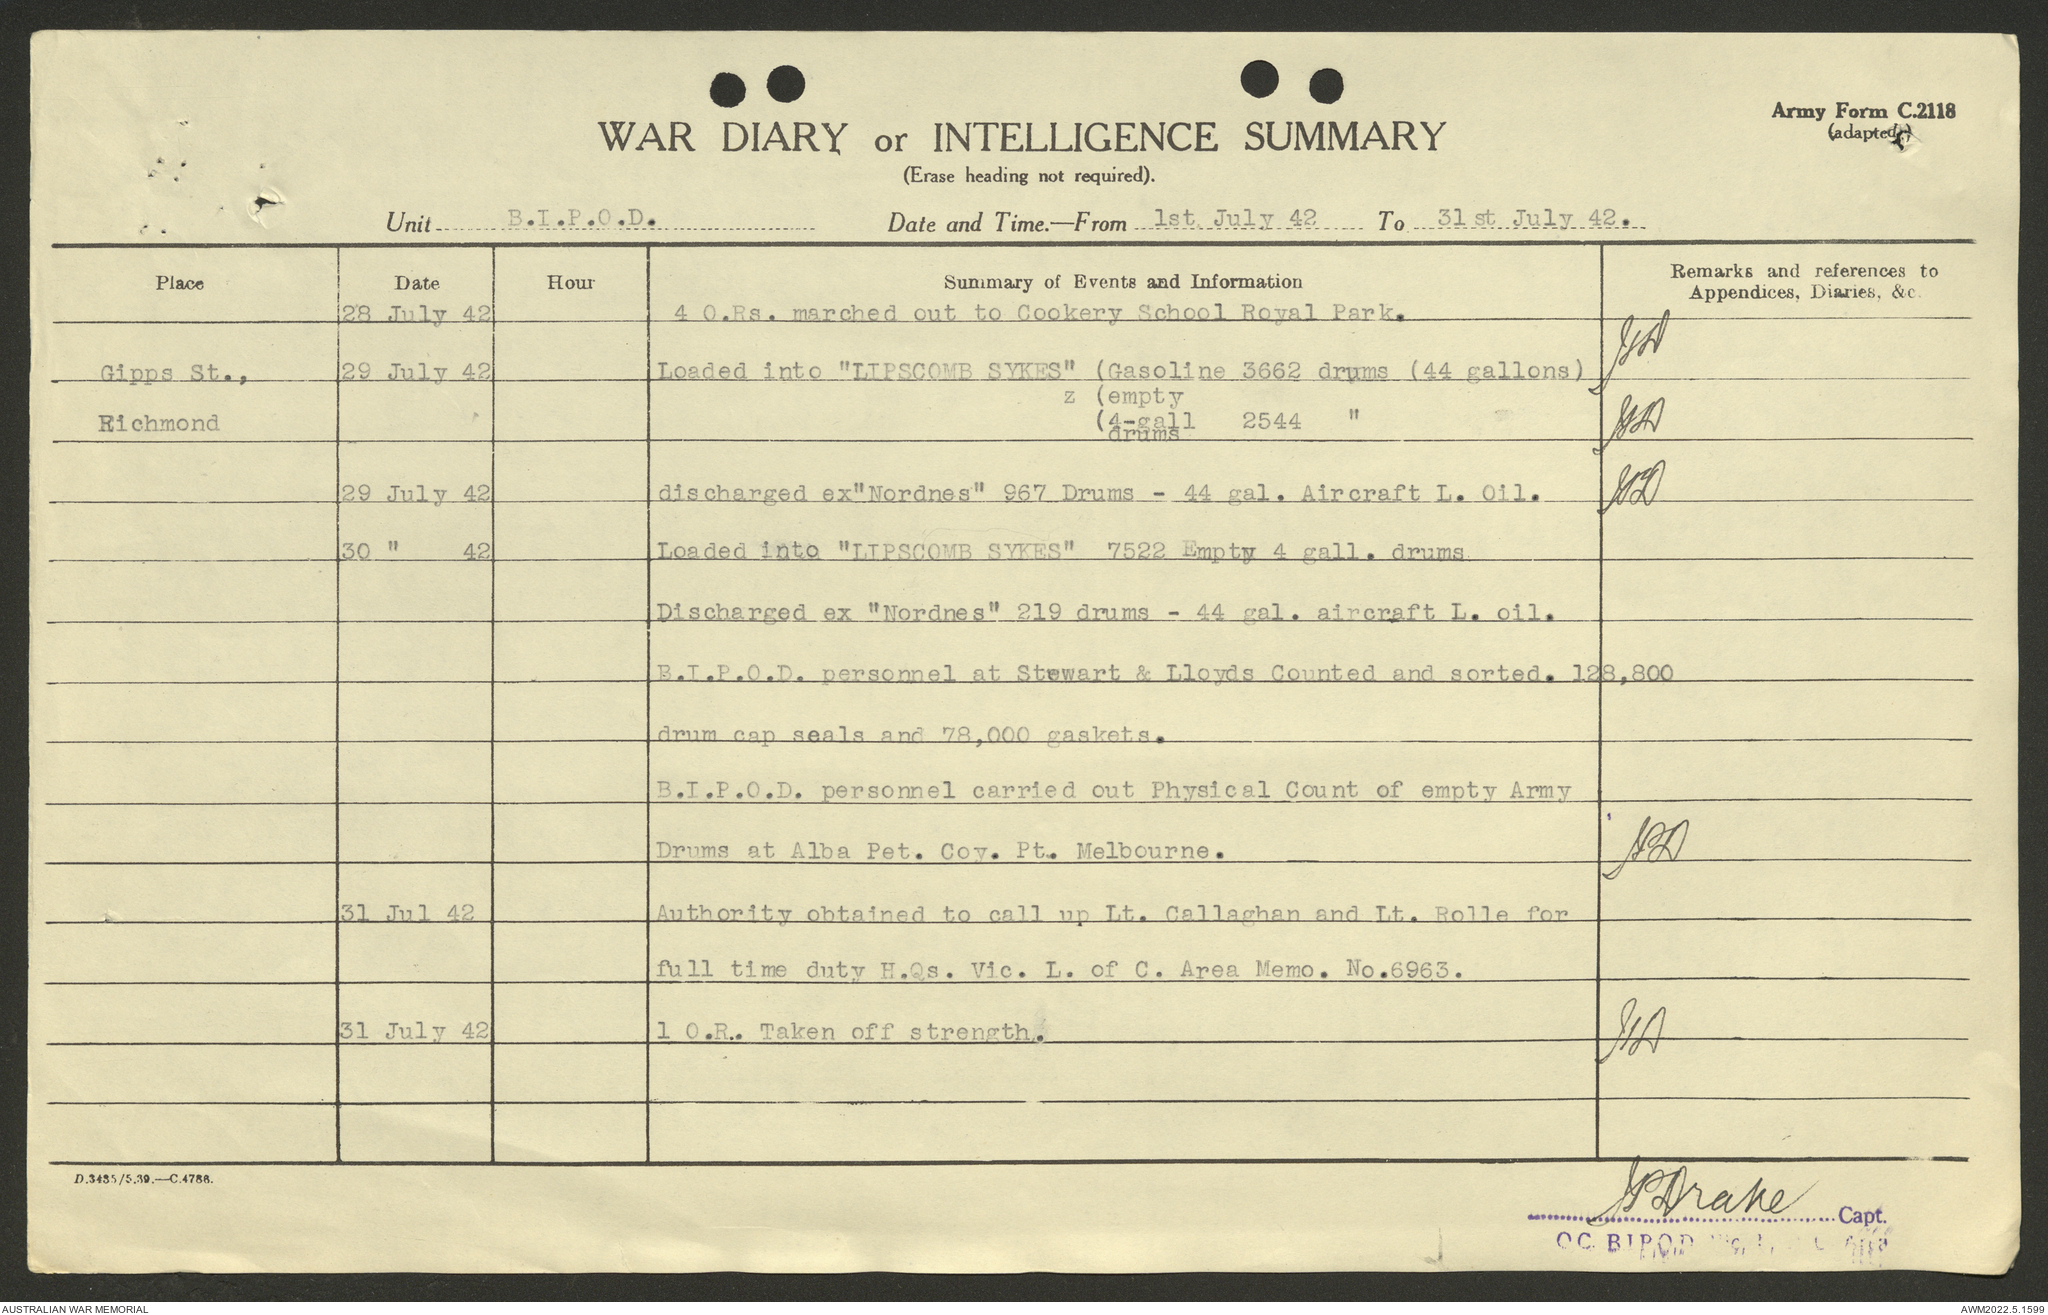 Army Form C.2118
(adapted)
WAR DIARY or INTELLIGENCE SUMMARY
(Erase heading not required).
Unit B.I.P.O.D. Date and Time.—From 1st July 42 To 31st July 42.
Place Date Hour Summary of Events and Information Remarks and references to
Appendices, Diaries, &c.
28 July 42 4 O.Rs. marched out to Cookery School Royal Park.
JPD
Gipps St., 29 July 42 Loaded into "LIPSCOMB SYKES" (Gasoline 3662 drums (44 gallons)
z (empty
Richmond (4-gall 2544 " JPD
drums
29 July 42 discharged ex"Nordnes" 967 Drums - 44 gal. Aircraft L. Oil. JPD
30 " 42 Loaded into "LIPSCOMB SYKES" 7522 Empty 4 gall. drums
Discharged ex "Nordnes" 219 drums - 44 gal. aircraft L. oil.
B.I.P.O.D. personnel at Stewart & Lloyds Counted and sorted. 128,800
drum cap seals and 78,000 gaskets.
B.I.P.O.D. personnel carried out Physical Count of empty Army
Drums at Alba Pet. Coy. Pt. Melbourne. JPD
31 Jul 42 Authority obtained to call up Lt. Callaghan and Lt. Rolle for
full time duty H.Qs. Vic. L. of C. Area Memo. No.6963.
31 July 42 1 O.R. Taken off strength. JPD
D.3485/5.39.—C.4786.
JPDrake Capt.
OC BIPOD
AUSTRALIAN WAR MEMORIAL AWM2022.5.1599